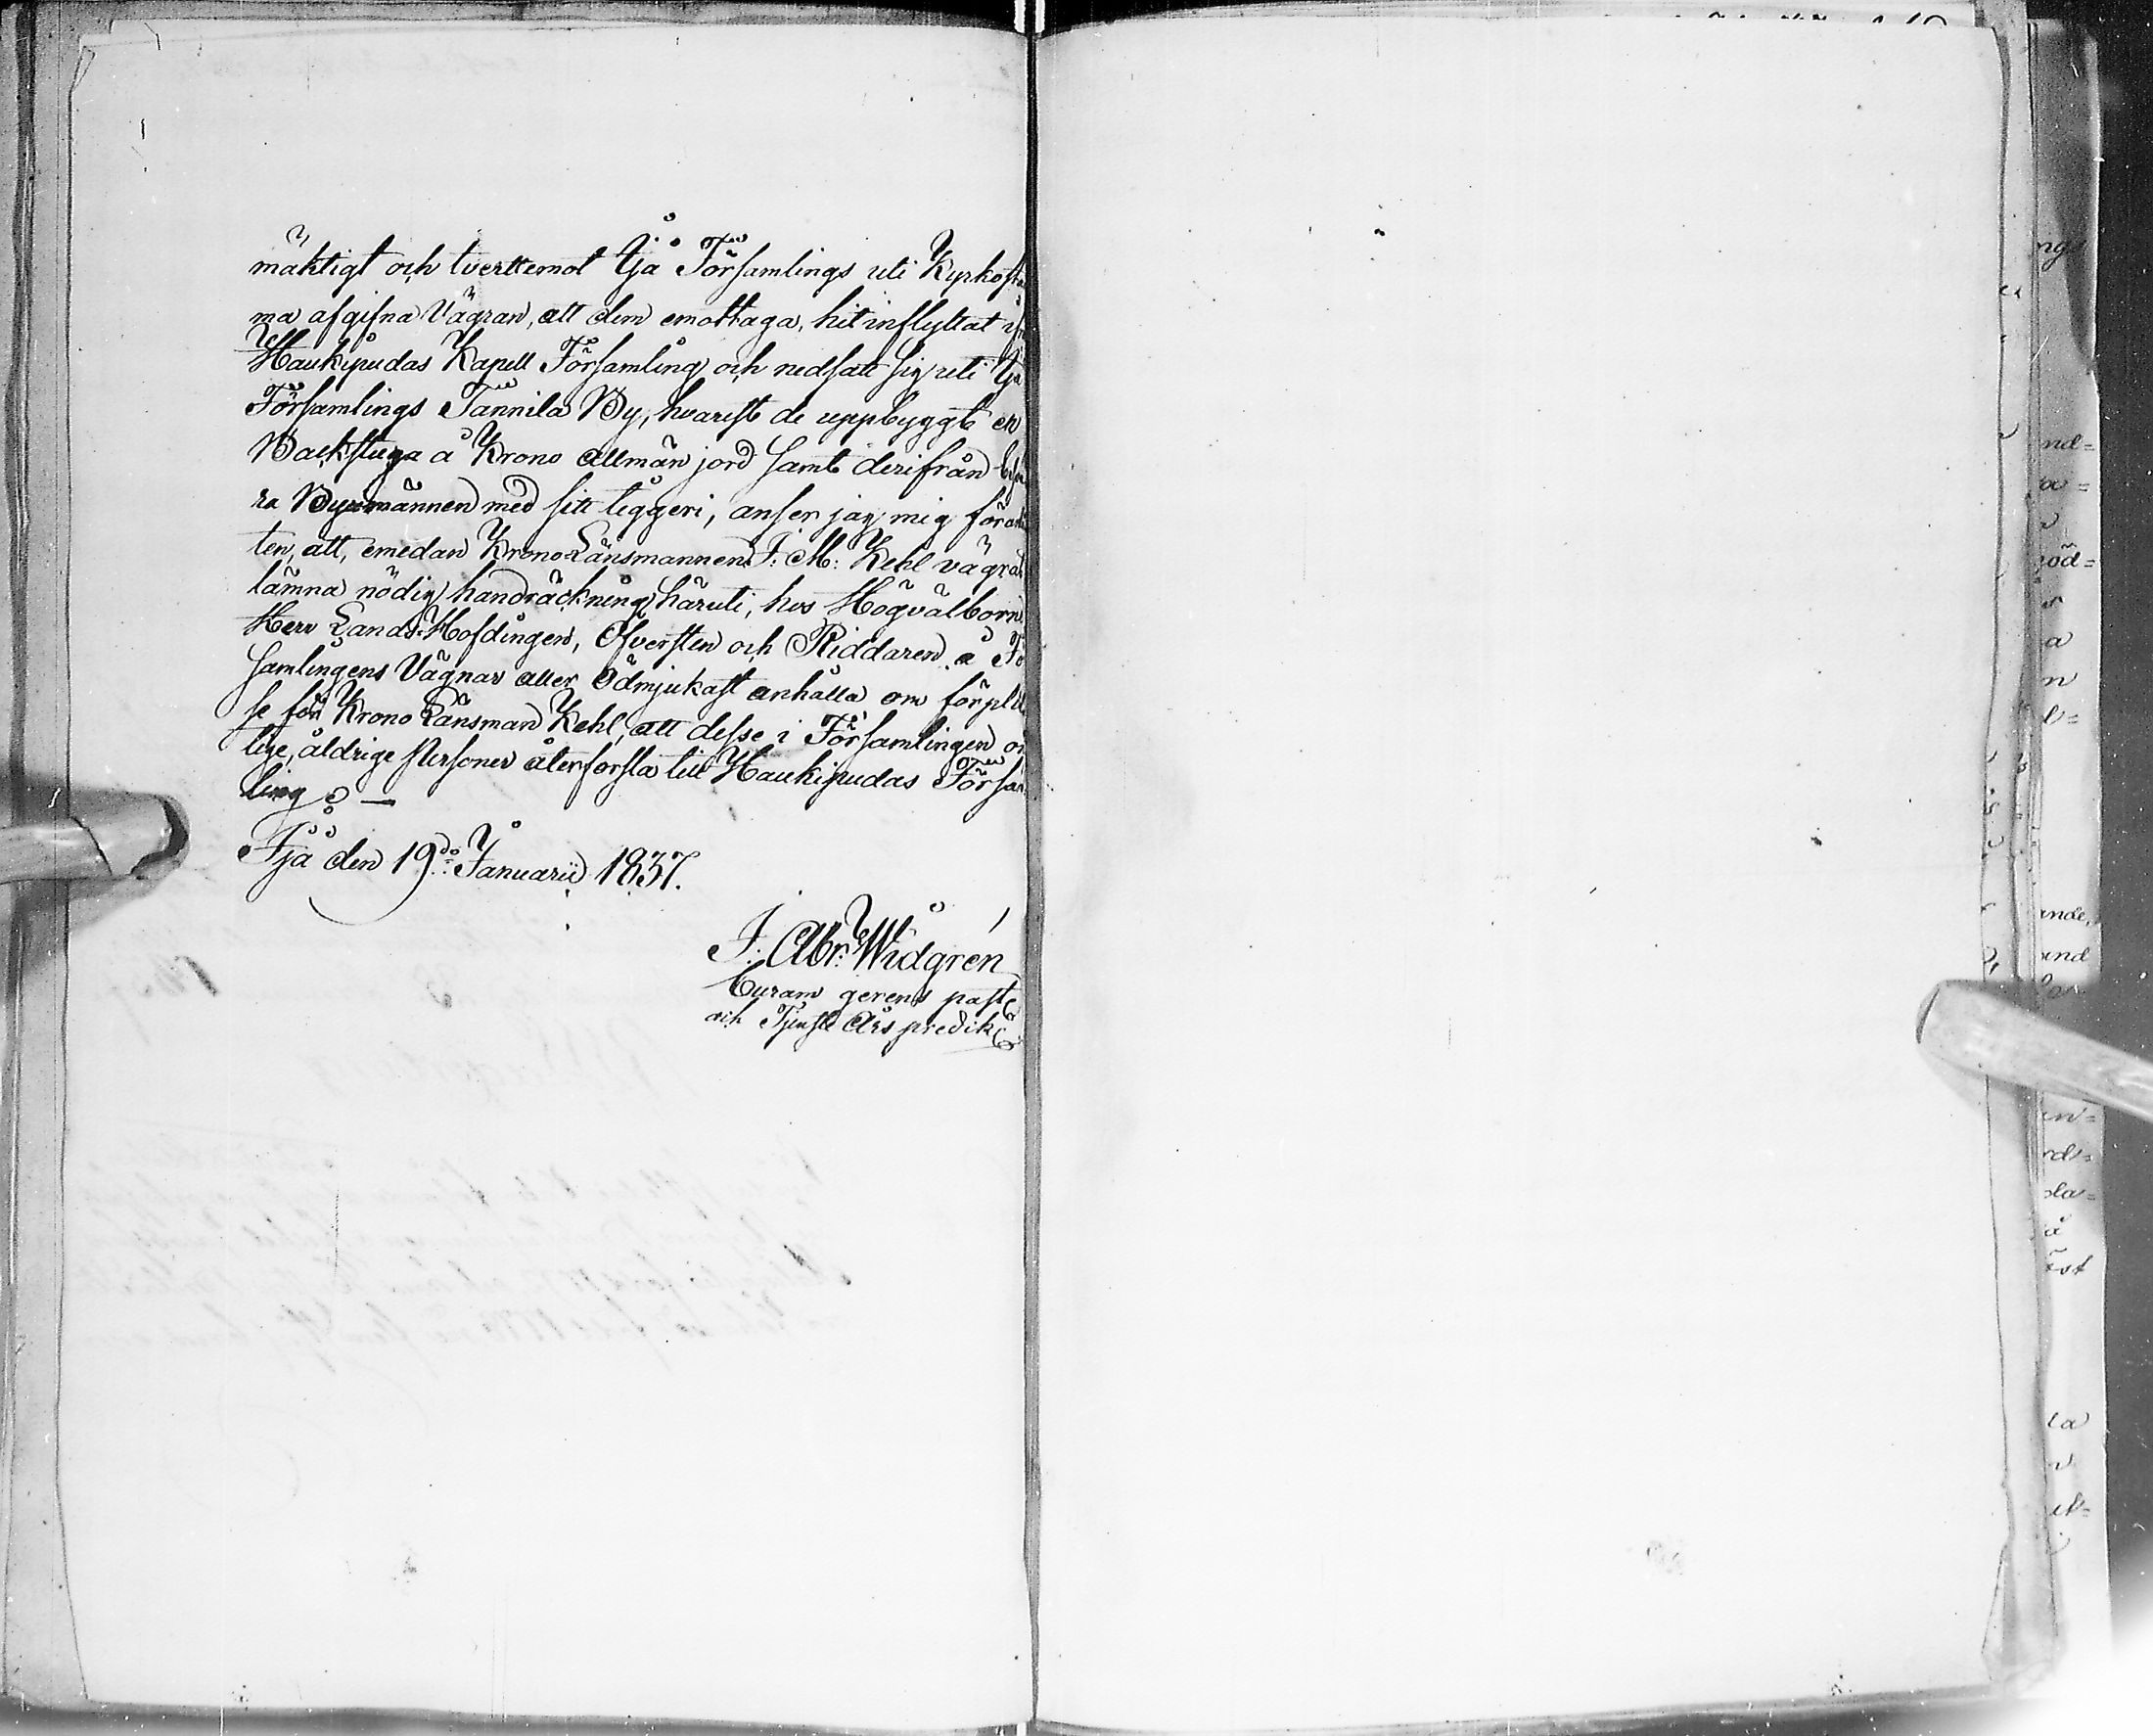 mäktigt och tverttemot Ijå Församlings uti Kyrkost
ma afgifna Vägran, att dem emottaga, hit inflyttat
Haukipudas Kapell Församling och nedsatt sig uti Ijå
Församlings Tannila By, hvarest de uppbyggt en
Backstuga å Krono allmän jord samt derifrån besvä
ra Byamännen med sitt tiggeri, anser jag mig
ten, att, emedan Krono-Länsmannen J: M: Kehl vägrat
lämna nödig handräckning häruti, hos Högvälborne
Herr Lands-Höfdingen, Öfversten och Riddaren å Fö
samlingens Vägnar aller Ödmjukast anhålla om förplik
se för Krono Länsman Kehl, att desse i Församlingen
lige, åldrige Personer återförsla till Haukipudas Försam
ling. —
Ijå den 19do Januarii 1837.
J: Abr: Widgrén
Curam gerens past
och Tjenste Års predik